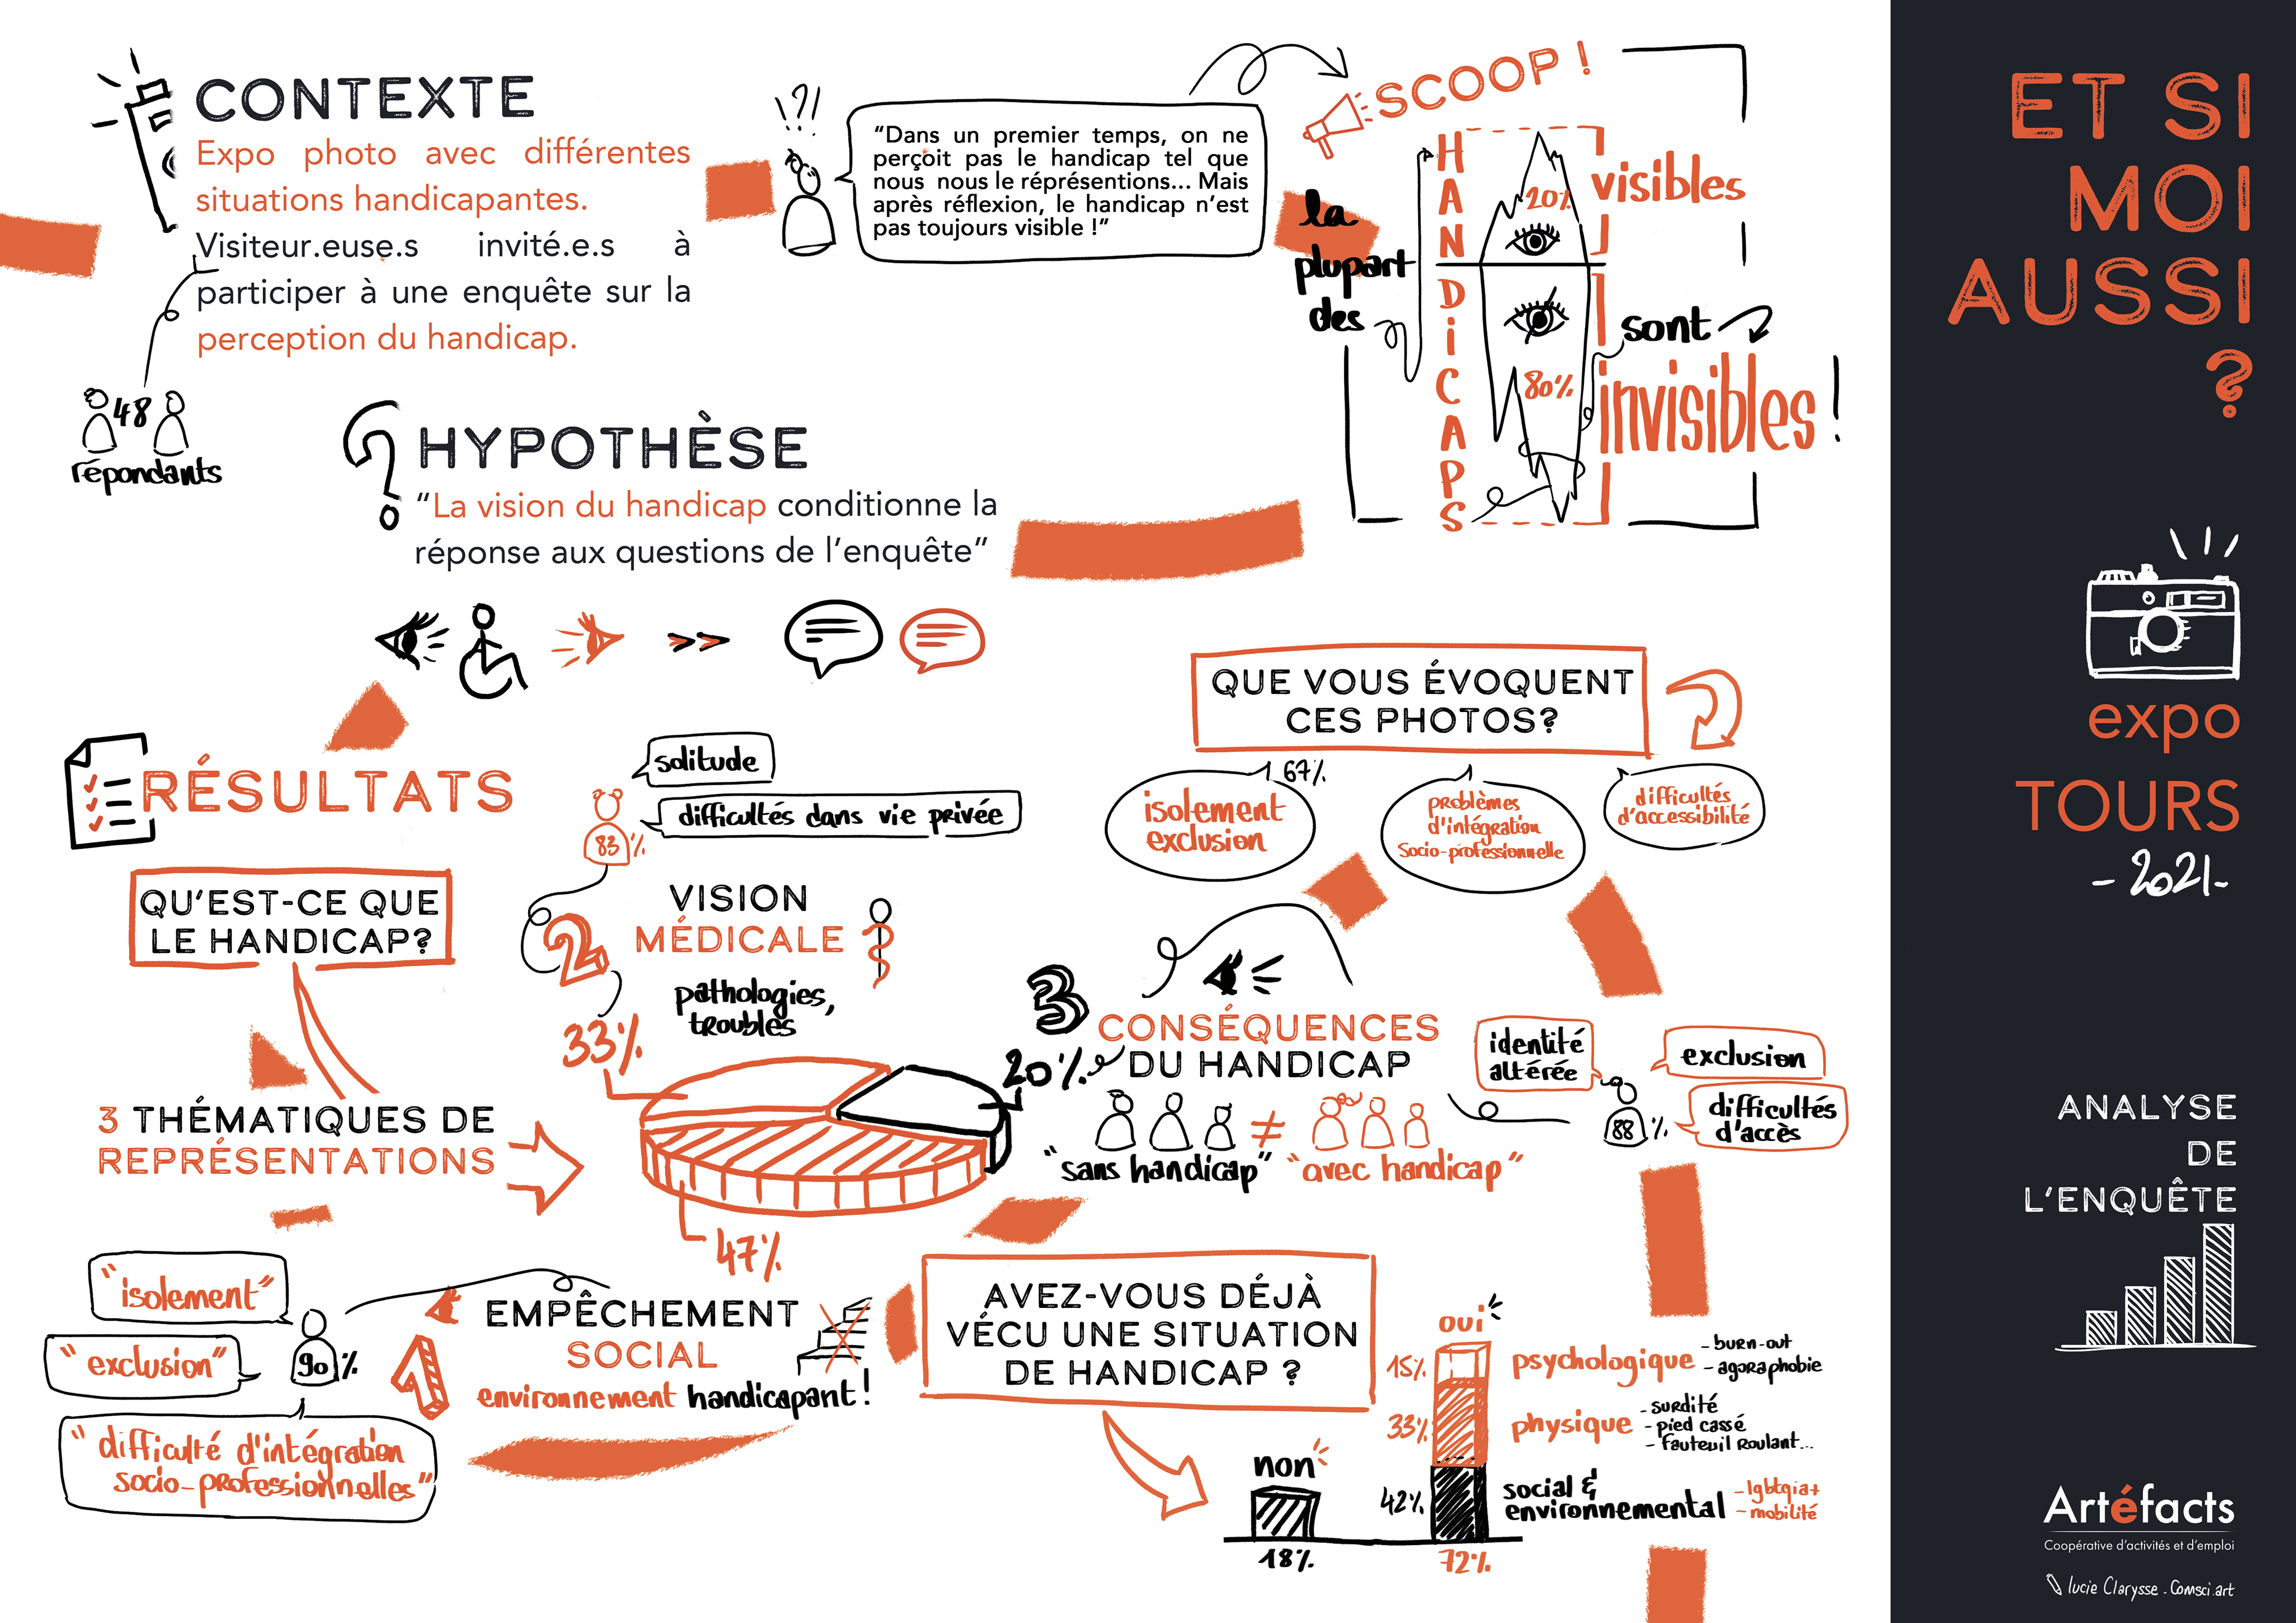 CONTEXTE
Expo photo avec différentes
situations handicapantes.
Visiteur.euse.s invité.e.s à
participer à une enquête sur la
perception du handicap.
48
répondants
!?!
“Dans un premier temps, on ne
perçoit pas le handicap tel que
nous nous le réprésentions... Mais
après réflexion, le handicap n’est
pas toujours visible !”
SCOOP !
la
plupart
des
HANDiCAPS
20%
visibles
sont
80%
invisibles !
HYPOTHÈSE
“La vision du handicap conditionne la
réponse aux questions de l’enquête”
RÉSULTATS
QU’EST-CE QUE
LE HANDICAP?
3 THÉMATIQUES DE
REPRÉSENTATIONS
solitude
difficultés dans vie privée
83%
2
VISION
MÉDICALE
pathologies,
troubles
33%
20%
47%
3
CONSÉQUENCES
DU HANDICAP
≠
“sans handicap” “avec handicap”
identité
altérée
exclusion
difficultés
d'accès
88%
QUE VOUS ÉVOQUENT
CES PHOTOS?
67%
isolement
exclusion
problèmes
d'intégration
Socio-professionnelle
difficultés
d'accessibilité
“isolement”
“exclusion”
90%
“difficulté d'intégration
socio-professionnelles”
1
EMPÊCHEMENT
SOCIAL
environnement handicapant!
AVEZ-VOUS DÉJÀ
VÉCU UNE SITUATION
DE HANDICAP ?
non
18%
oui
15%
psychologique
- burn-out
- agoraphobie
33%
physique
- surdité
- pied cassé
- fauteuil roulant...
42%
social &
environnemental
- lgbtqia+
- mobilité
72%
ET SI
MOI
AUSSI
?
expo
TOURS
- 2021-
ANALYSE
DE
L’ENQUÊTE
Artéfacts
Coopérative d’activités et d’emploi
lucie Clarysse . Comsci.art